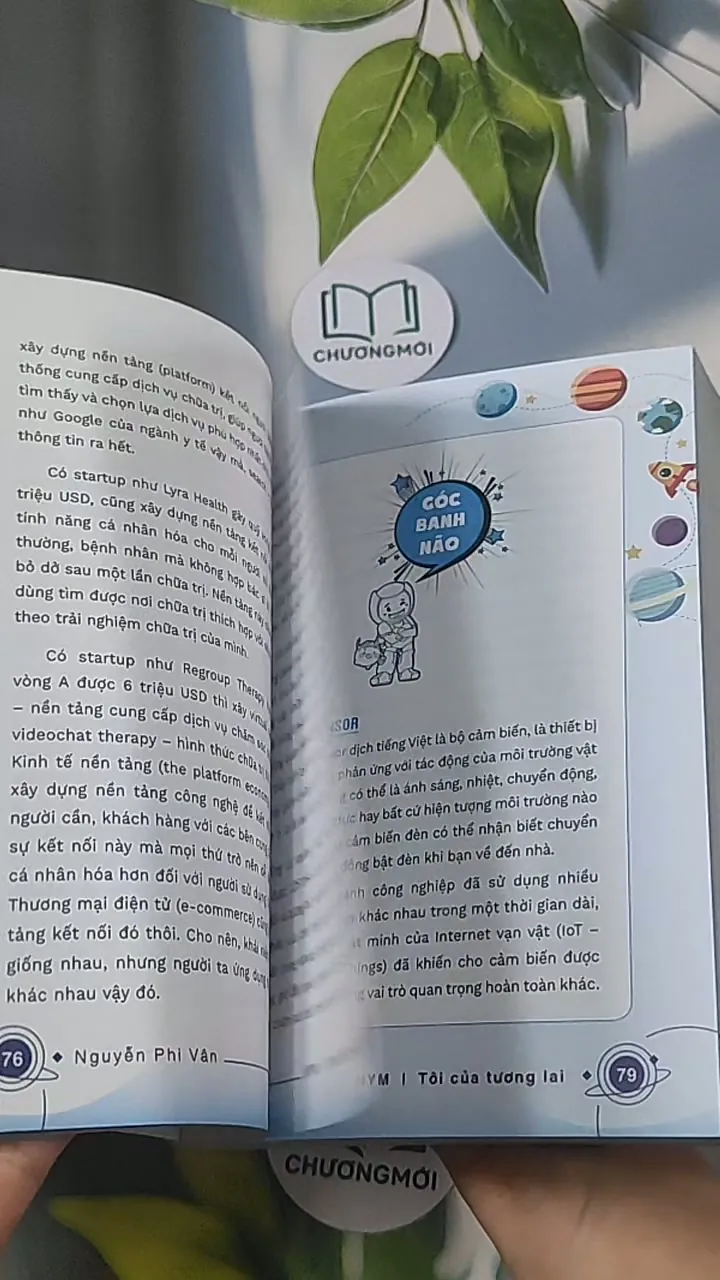 CHƯƠNGMỚI
xây dựng nền tảng (platform) kết nối
thống cung cấp dịch vụ chữa trị, giúp người
tìm thấy và chọn lựa dịch vụ phù hợp nhất
như Google của ngành y tế vậy mà, search
thông tin ra hết.
Có startup như Lyra Health gây quỹ
triệu USD, cũng xây dựng nền tảng kết nối
tính năng cá nhân hóa cho mỗi người
thường, bệnh nhân mà không hợp bác sĩ
bỏ dở sau một lần chữa trị. Nền tảng này
dùng tìm được nơi chữa trị thích hợp với
theo trải nghiệm chữa trị của mình.
Có startup như Regroup Therapy
vòng A được 6 triệu USD thì xây virtual
– nền tảng cung cấp dịch vụ chăm sóc
videochat therapy – hình thức chữa trị
Kinh tế nền tảng (the platform economy)
xây dựng nền tảng công nghệ để kết
người cần, khách hàng với các bên cung
sự kết nối này mà mọi thứ trở nên
cá nhân hóa hơn đối với người sử dụng.
Thương mại điện tử (e-commerce) cũng
tảng kết nối đó thôi. Cho nên, khái niệm
giống nhau, nhưng người ta ứng dụng
khác nhau vậy đó.
76 ◆ Nguyễn Phi Vân
GÓC
BANH
NÃO
SOR
dịch tiếng Việt là bộ cảm biến, là thiết bị
phản ứng với tác động của môi trường vật
có thể là ánh sáng, nhiệt, chuyển động,
hay bất cứ hiện tượng môi trường nào
cảm biến đèn có thể nhận biết chuyển
động bật đèn khi bạn về đến nhà.
công nghiệp đã sử dụng nhiều
khác nhau trong một thời gian dài,
minh của Internet vạn vật (IoT –
ings) đã khiến cho cảm biến được
vai trò quan trọng hoàn toàn khác.
YM | Tôi của tương lai ◆ 79
CHƯƠNGMỚI